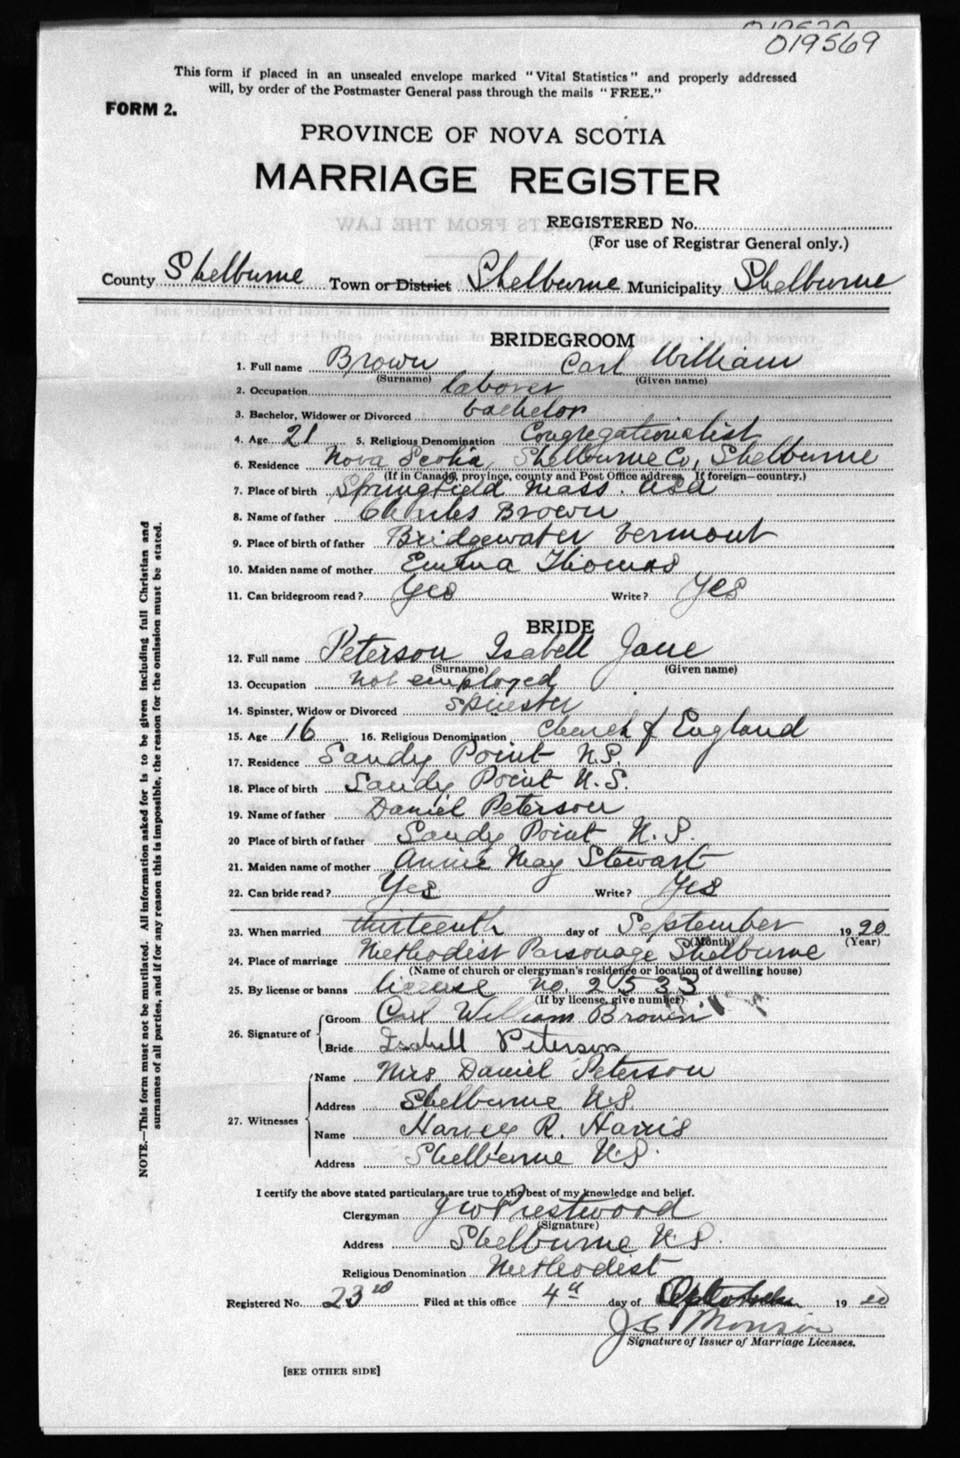 019569
This form if placed in an unsealed envelope marked "Vital Statistics" and properly addressed
will, by order of the Postmaster General pass through the mails "FREE."
FORM 2.
PROVINCE OF NOVA SCOTIA
MARRIAGE REGISTER
REGISTERED No.
(For use of Registrar General only.)
County Shelburne Town or District Shelburne Municipality Shelburne
BRIDEGROOM
1. Full name Brown Carl William
(Surname) (Given name)
2. Occupation laborer
3. Bachelor, Widower or Divorced bachelor
4. Age 21 5. Religious Denomination Congregationalist
6. Residence Nova Scotia, Shelburne Co, Shelburne
(If in Canada, province, county and Post Office address, If foreign—country.)
7. Place of birth Springfield Mass. USA
8. Name of father Charles Brown
9. Place of birth of father Bridgewater Vermont
10. Maiden name of mother Emma Thomas
11. Can bridegroom read? Yes Write? Yes
BRIDE
12. Full name Peterson Isabell Jane
(Surname) (Given name)
13. Occupation not employed
14. Spinster, Widow or Divorced Spinster
15. Age 16 16. Religious Denomination Church of England
17. Residence Sandy Point N.S.
18. Place of birth Sandy Point N.S.
19. Name of father Daniel Peterson
20 Place of birth of father Sandy Point N.S.
21. Maiden name of mother Annie May Stewart
22. Can bride read? Yes Write? Yes
23. When married thirteenth day of September 1920
(Month) (Year)
24. Place of marriage Methodist Parsonage Shelburne
(Name of church or clergyman's residence or location of dwelling house)
25. By license or banns license no. 2533
(If by license, give number)
26. Signature of Groom Carl William Brown
Bride Isabell Peterson
27. Witnesses Name Mrs Daniel Peterson
Address Shelburne N.S.
Name Harvey R. Harris
Address Shelburne N.S.
I certify the above stated particulars are true to the best of my knowledge and belief.
Clergyman J W Prestwood
(Signature)
Address Shelburne N.S.
Religious Denomination Methodist
Registered No. 23rd Filed at this office 4th day of October 1920
J C Morrison
Signature of Issuer of Marriage Licenses.
[SEE OTHER SIDE]
NOTE.—This form must not be mutilated. All information asked for is to be given including full Christian and
surnames of all parties, and if for any reason this is impossible, the reason for the omission must be stated.